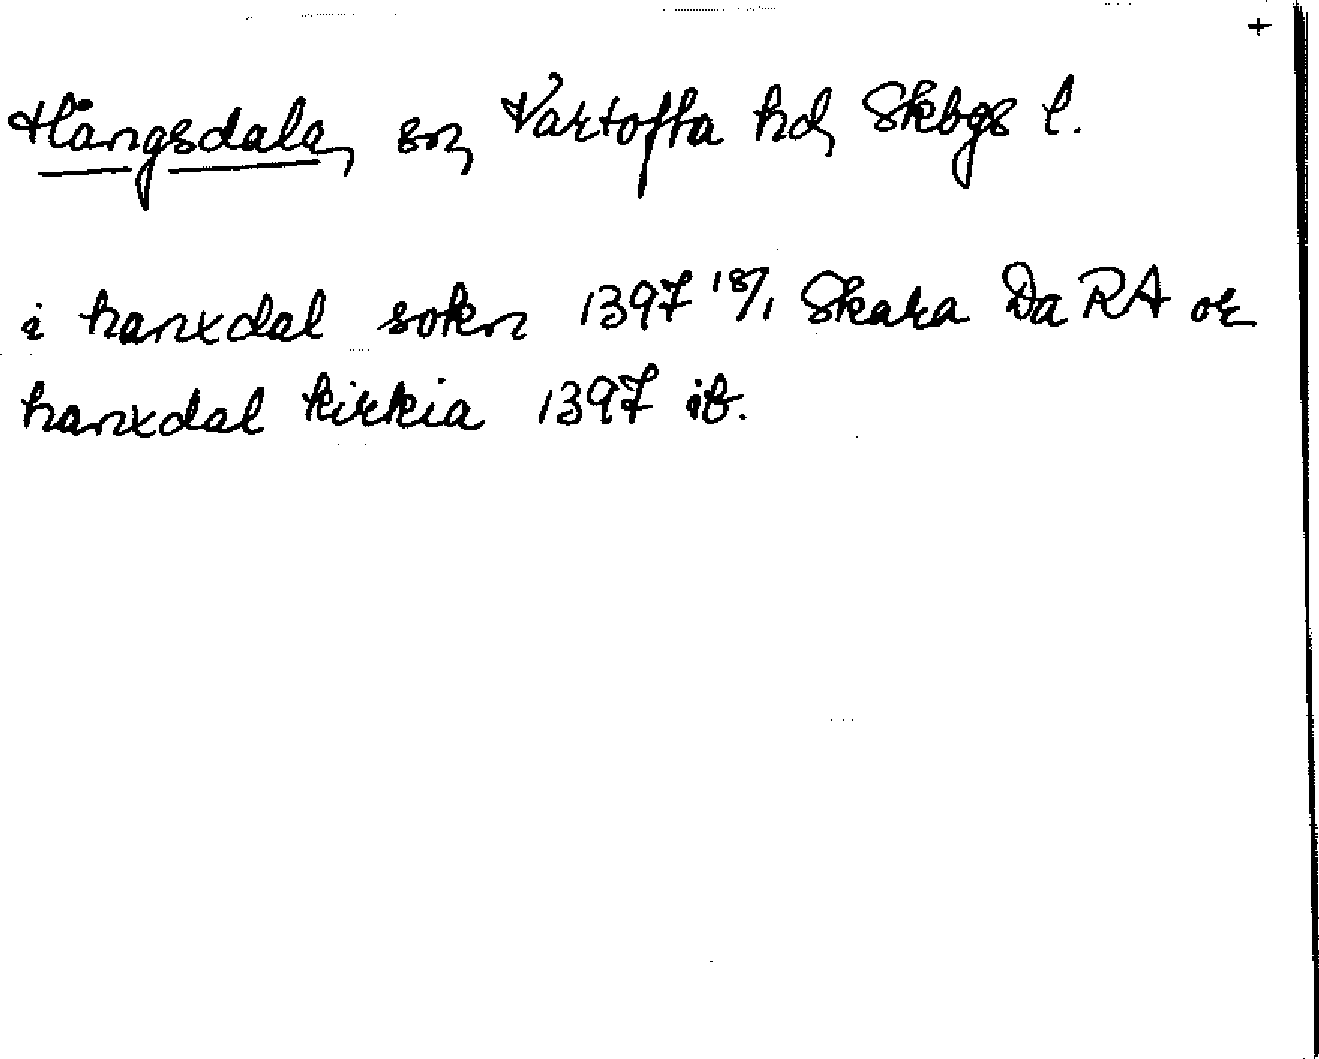 +
Hångsdala, sn, Vartofta hd, Skbgs l.
i hanxdal sokn 1397 18/1 Skara Da RA or
hanxdal kirkia 1397 ib.